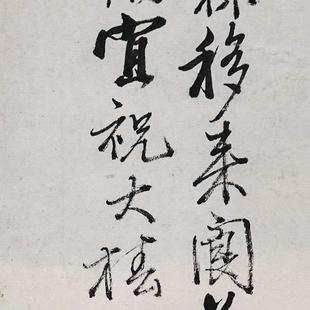 移来閬
宜祝大椿